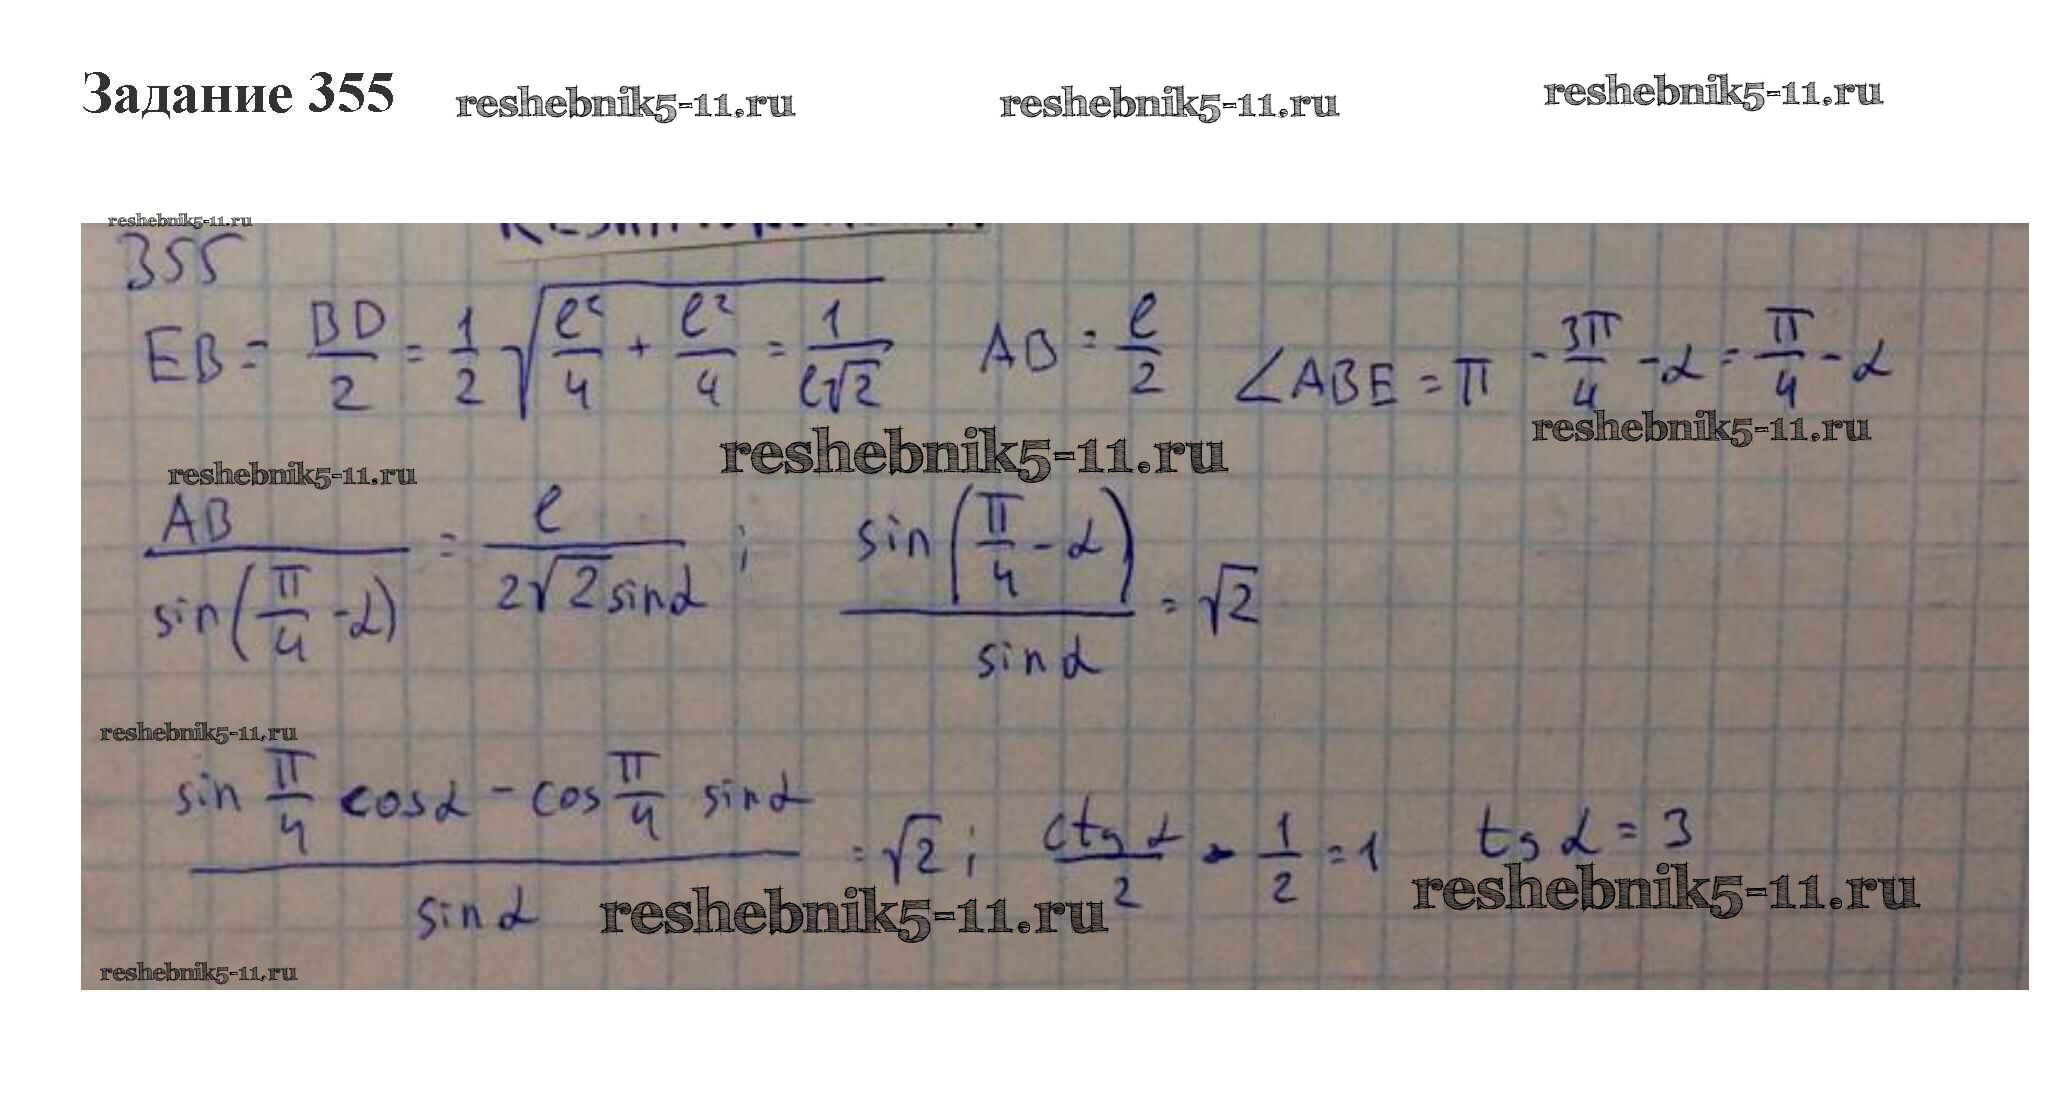 Задание 355 reshebnik5-11.ru reshebnik5-11.ru reshebnik5-11.ru
reshebnik5-11.ru
355
EB = BD/2 = 1/2 √(l²/4 + l²/4 = 1/(l√2) AB = l/2 ∠ABE = π - 3π/4 - α = π/4 - α
reshebnik5-11.ru reshebnik5-11.ru reshebnik5-11.ru
AB/sin(π/4 - α) = l/(2√2 sinα) ; sin(π/4 - α)/sinα = √2
reshebnik5-11.ru
(sin π/4 cosα - cos π/4 sinα)/sinα = √2 ; ctg α/2 - 1/2 = 1 tg α = 3
reshebnik5-11.ru reshebnik5-11.ru
reshebnik5-11.ru